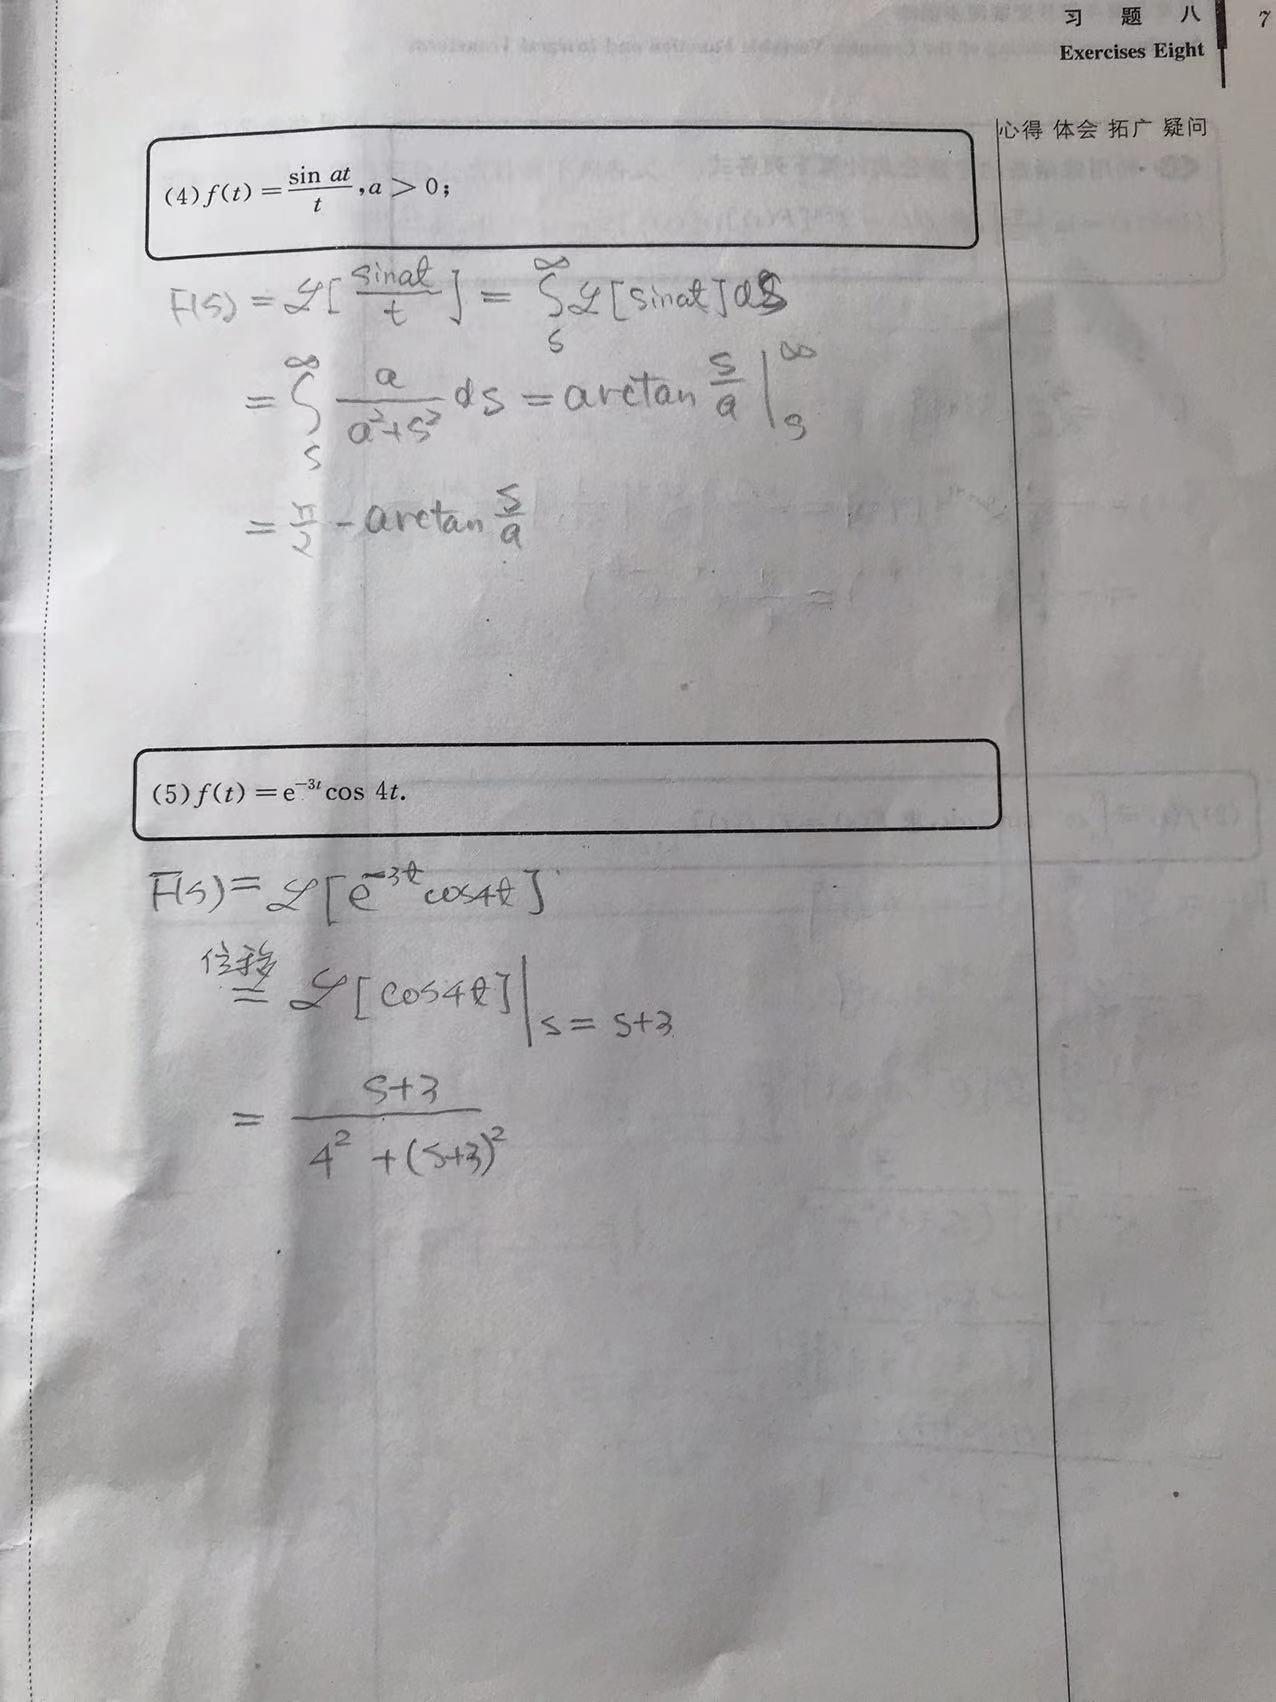 习 题 八 7
Exercises Eight
心得 体会 拓广 疑问
(4) f(t) = sin at / t , a > 0;
F(s) = ℒ[sinat / t] = ∫_s^∞ ℒ[sinat]ds
= ∫_s^∞ a / (a²+s²) ds = arctan s/a |_s^∞
= π/2 - arctan s/a
(5) f(t) = e^{-3t} cos 4t.
F(s) = ℒ[e^{-3t} cos4t]
位移
= ℒ[cos4t] |_{s = s+3}
= (s+3) / (4² + (s+3)²)